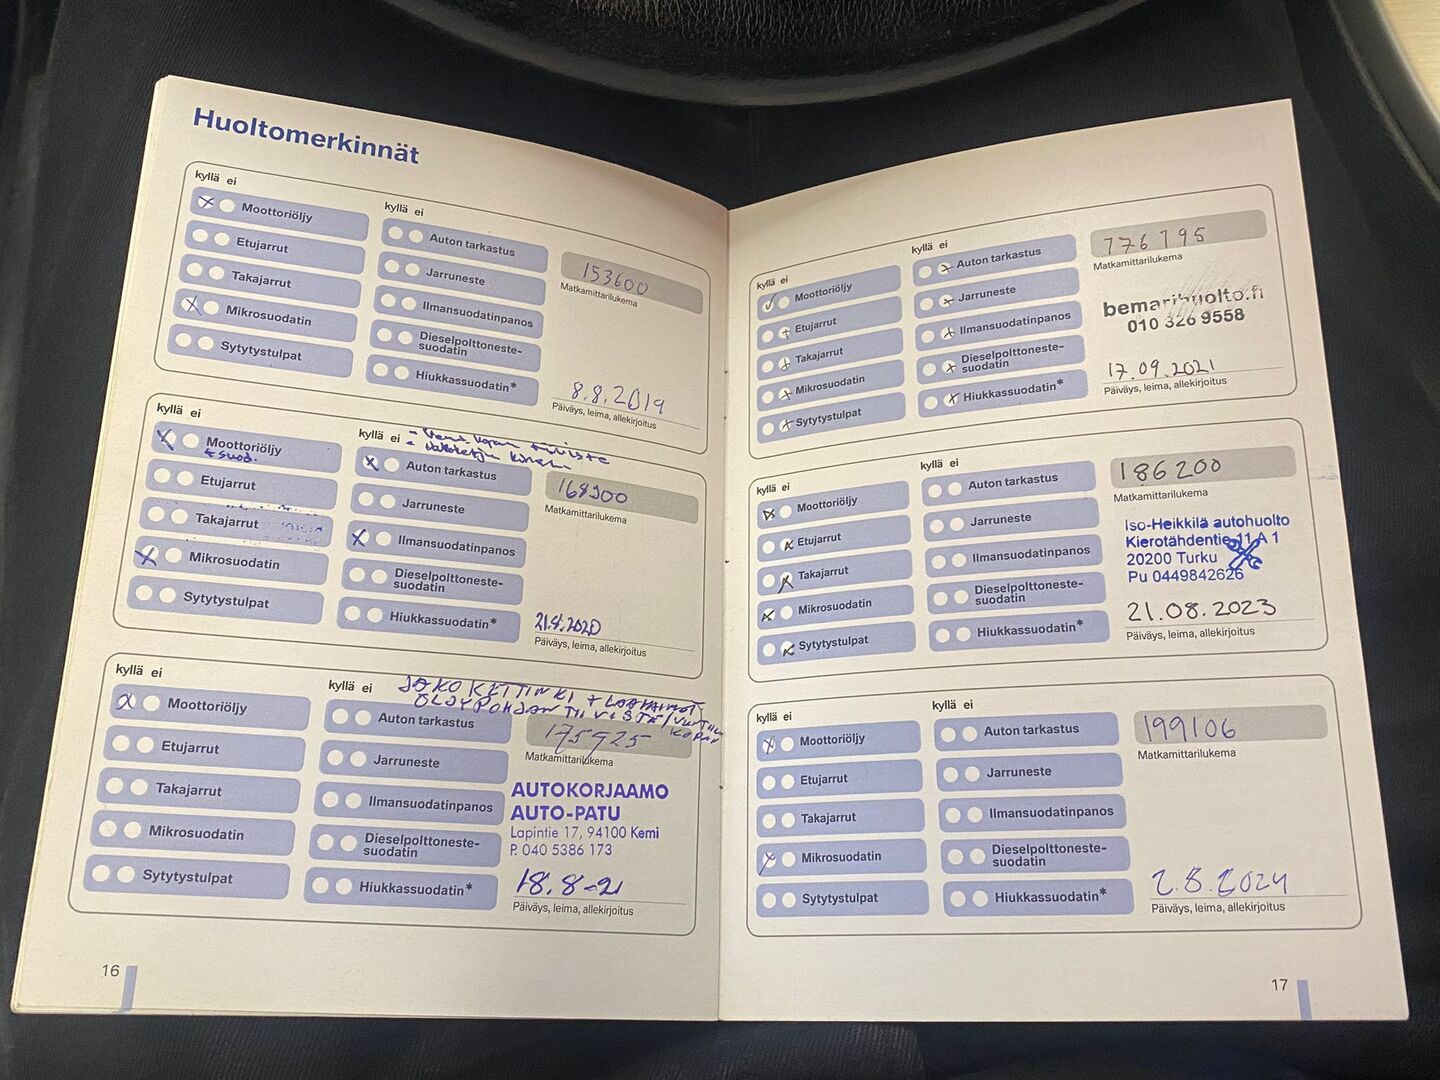 Huoltomerkinnät
kyllä ei
Moottoriöljy
Etujarrut
Takajarrut
Mikrosuodatin
Sytytystulpat
kyllä ei
Auton tarkastus
Jarruneste
Ilmansuodatinpanos
Dieselpolttoneste-
suodatin
Hiukkassuodatin*
153600
Matkamittarilukema
8.8.2019
Päiväys, leima, allekirjoitus
kyllä ei
Moottoriöljy
+ suod.
Etujarrut
Takajarrut
Mikrosuodatin
Sytytystulpat
kyllä ei
Auton tarkastus
Jarruneste
Ilmansuodatinpanos
Dieselpolttoneste-
suodatin
Hiukkassuodatin*
Matkamittarilukema
21.8.2020
Päiväys, leima, allekirjoitus
kyllä ei
Moottoriöljy
Etujarrut
Takajarrut
Mikrosuodatin
Sytytystulpat
kyllä ei
JAKOKETTINKI +
ÖLJYPOHJAN TIIVISTE
KOPAN
Auton tarkastus
Jarruneste
Ilmansuodatinpanos
Dieselpolttoneste-
suodatin
Hiukkassuodatin*
175925
Matkamittarilukema
AUTOKORJAAMO
AUTO-PATU
Lapintie 17, 94100 Kemi
P. 040 5386 173
18.8-21
Päiväys, leima, allekirjoitus
16
kyllä ei
Moottoriöljy
Etujarrut
Takajarrut
Mikrosuodatin
Sytytystulpat
kyllä ei
Auton tarkastus
Jarruneste
Ilmansuodatinpanos
Dieselpolttoneste-
suodatin
Hiukkassuodatin*
176195
Matkamittarilukema
bemarihuolto.fi
010 326 9558
17.09.2021
Päiväys, leima, allekirjoitus
kyllä ei
Moottoriöljy
Etujarrut
Takajarrut
Mikrosuodatin
Sytytystulpat
kyllä ei
Auton tarkastus
Jarruneste
Ilmansuodatinpanos
Dieselpolttoneste-
suodatin
Hiukkassuodatin*
186200
Matkamittarilukema
Iso-Heikkilä autohuolto
Kierotähdentie 11 A 1
20200 Turku
Pu 0449842626
21.08.2023
Päiväys, leima, allekirjoitus
kyllä ei
Moottoriöljy
Etujarrut
Takajarrut
Mikrosuodatin
Sytytystulpat
kyllä ei
Auton tarkastus
Jarruneste
Ilmansuodatinpanos
Dieselpolttoneste-
suodatin
Hiukkassuodatin*
199106
Matkamittarilukema
2.8.2024
Päiväys, leima, allekirjoitus
17